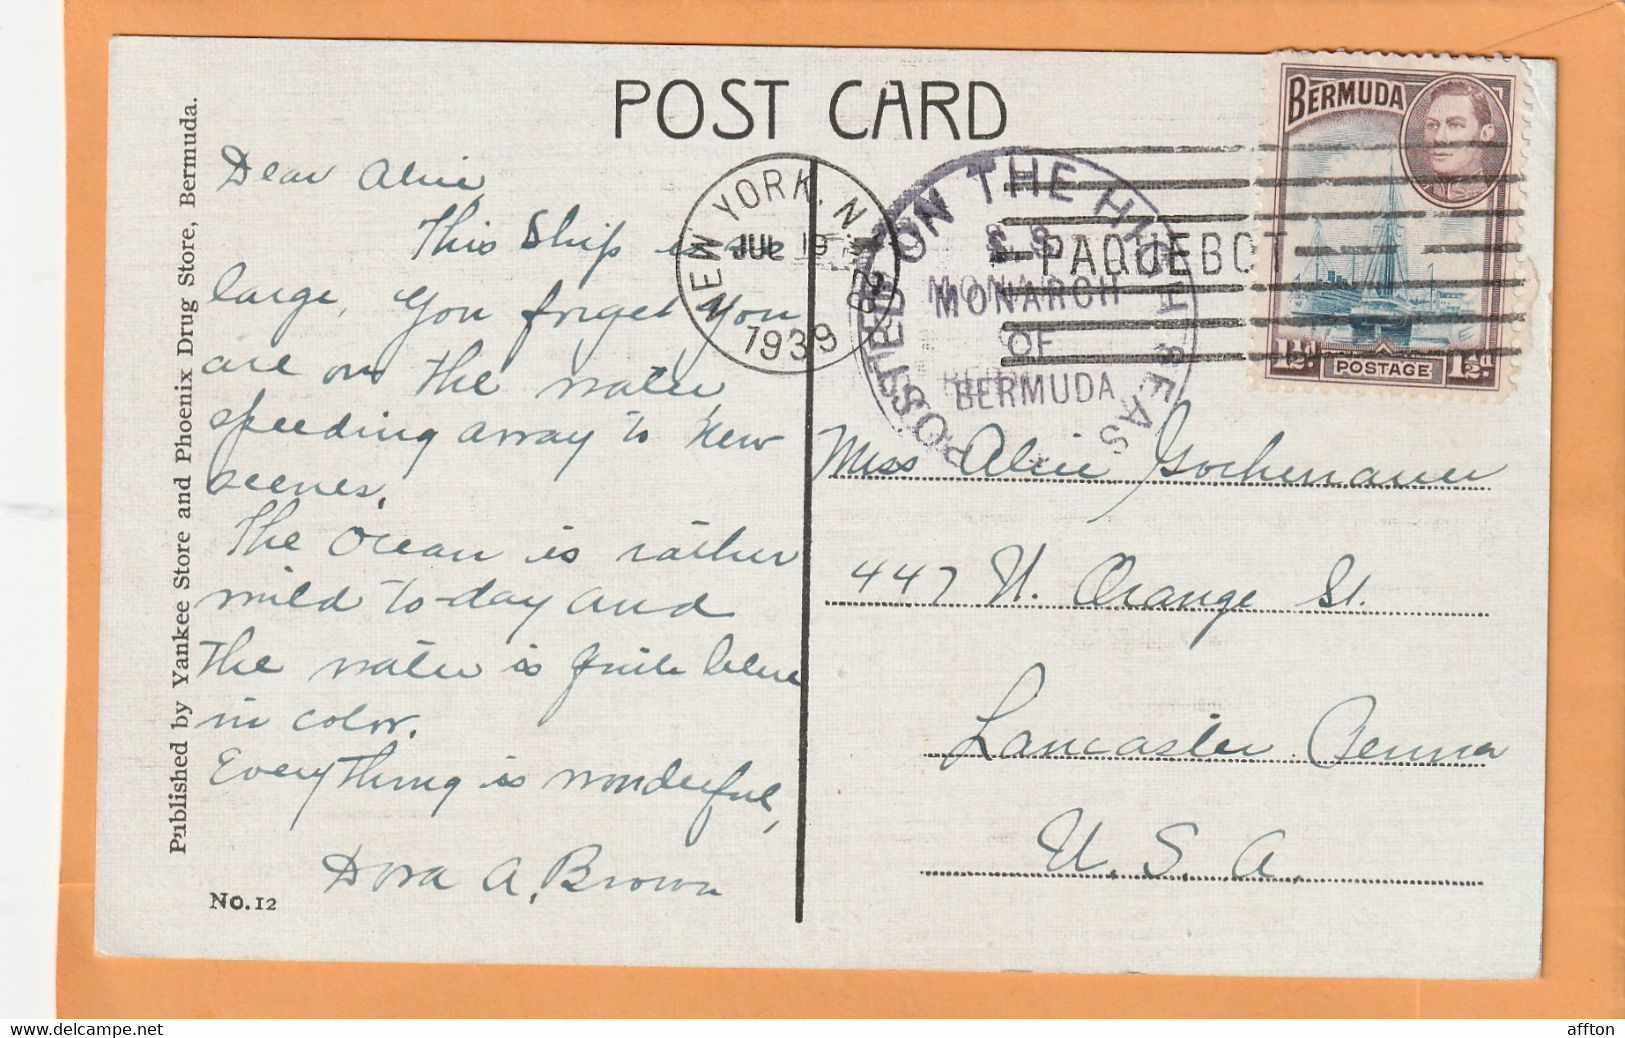 POST CARD
Published by Yankee Store and Phoenix Drug Store, Bermuda.
Dear Alice,
This Ship is so
large, you forget you
are on the water
speeding away to new
scenes.
The Ocean is rather
mild to-day and
the water is quite blue
in color.
Everything is wonderful,
Dora A. Brown
No. 12
NEW YORK, N.Y.
JUL 19
1939
PAQUEBOT
POSTED ON THE HIGH SEAS
S.S.
MONARCH
OF
BERMUDA
BERMUDA
1½d. POSTAGE 1½d.
Miss Alice Gochenauer
447 N. Orange St.
Lancaster Penna
U. S. A.
affton